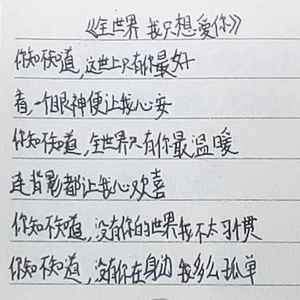 《全世界 我只想爱你》
你知不知道,这世上只有你最好
看,一个眼神便让我心安
你知不知道,全世界只有你最温暖
连背影都让我心欢喜
你知不知道,没有你的世界我不太习惯
你知不知道,没有你在身边我多么孤单